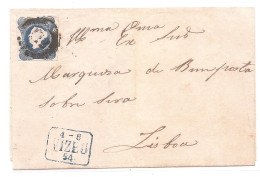 Illma Exma Snra
Marqueza de Bemposta
sobre serra
Lisboa
4 - 8
VIZEU
54